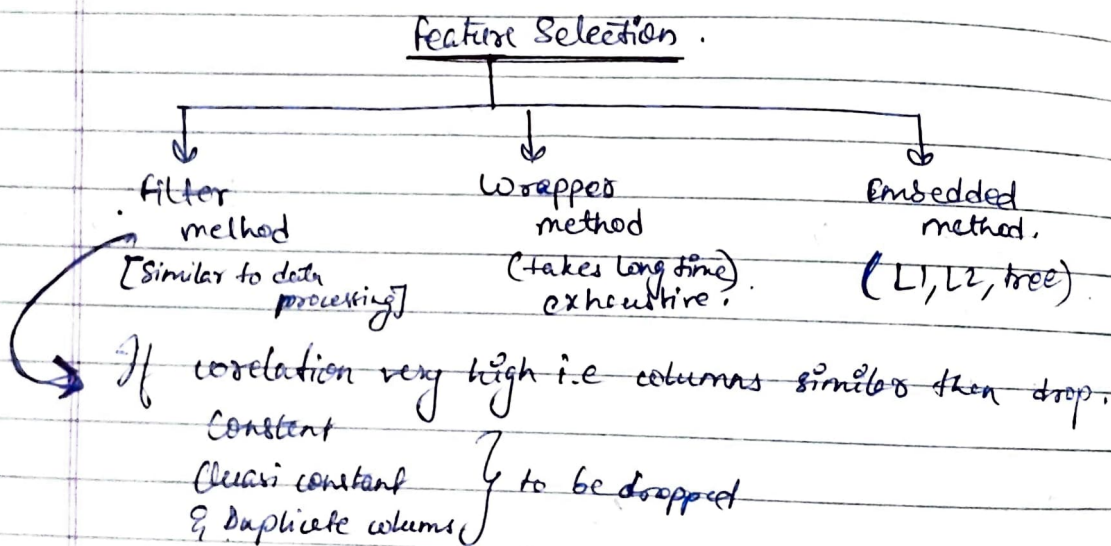 Feature Selection.
Filter
method
[Similar to data
processing]
Wrapper
method
(takes long time)
exhaustive.
Embedded
method.
(L1, L2, tree)
If corelation very high i.e columns similar then drop.
Constant
Quasi constant
& Duplicate colums
to be dropped